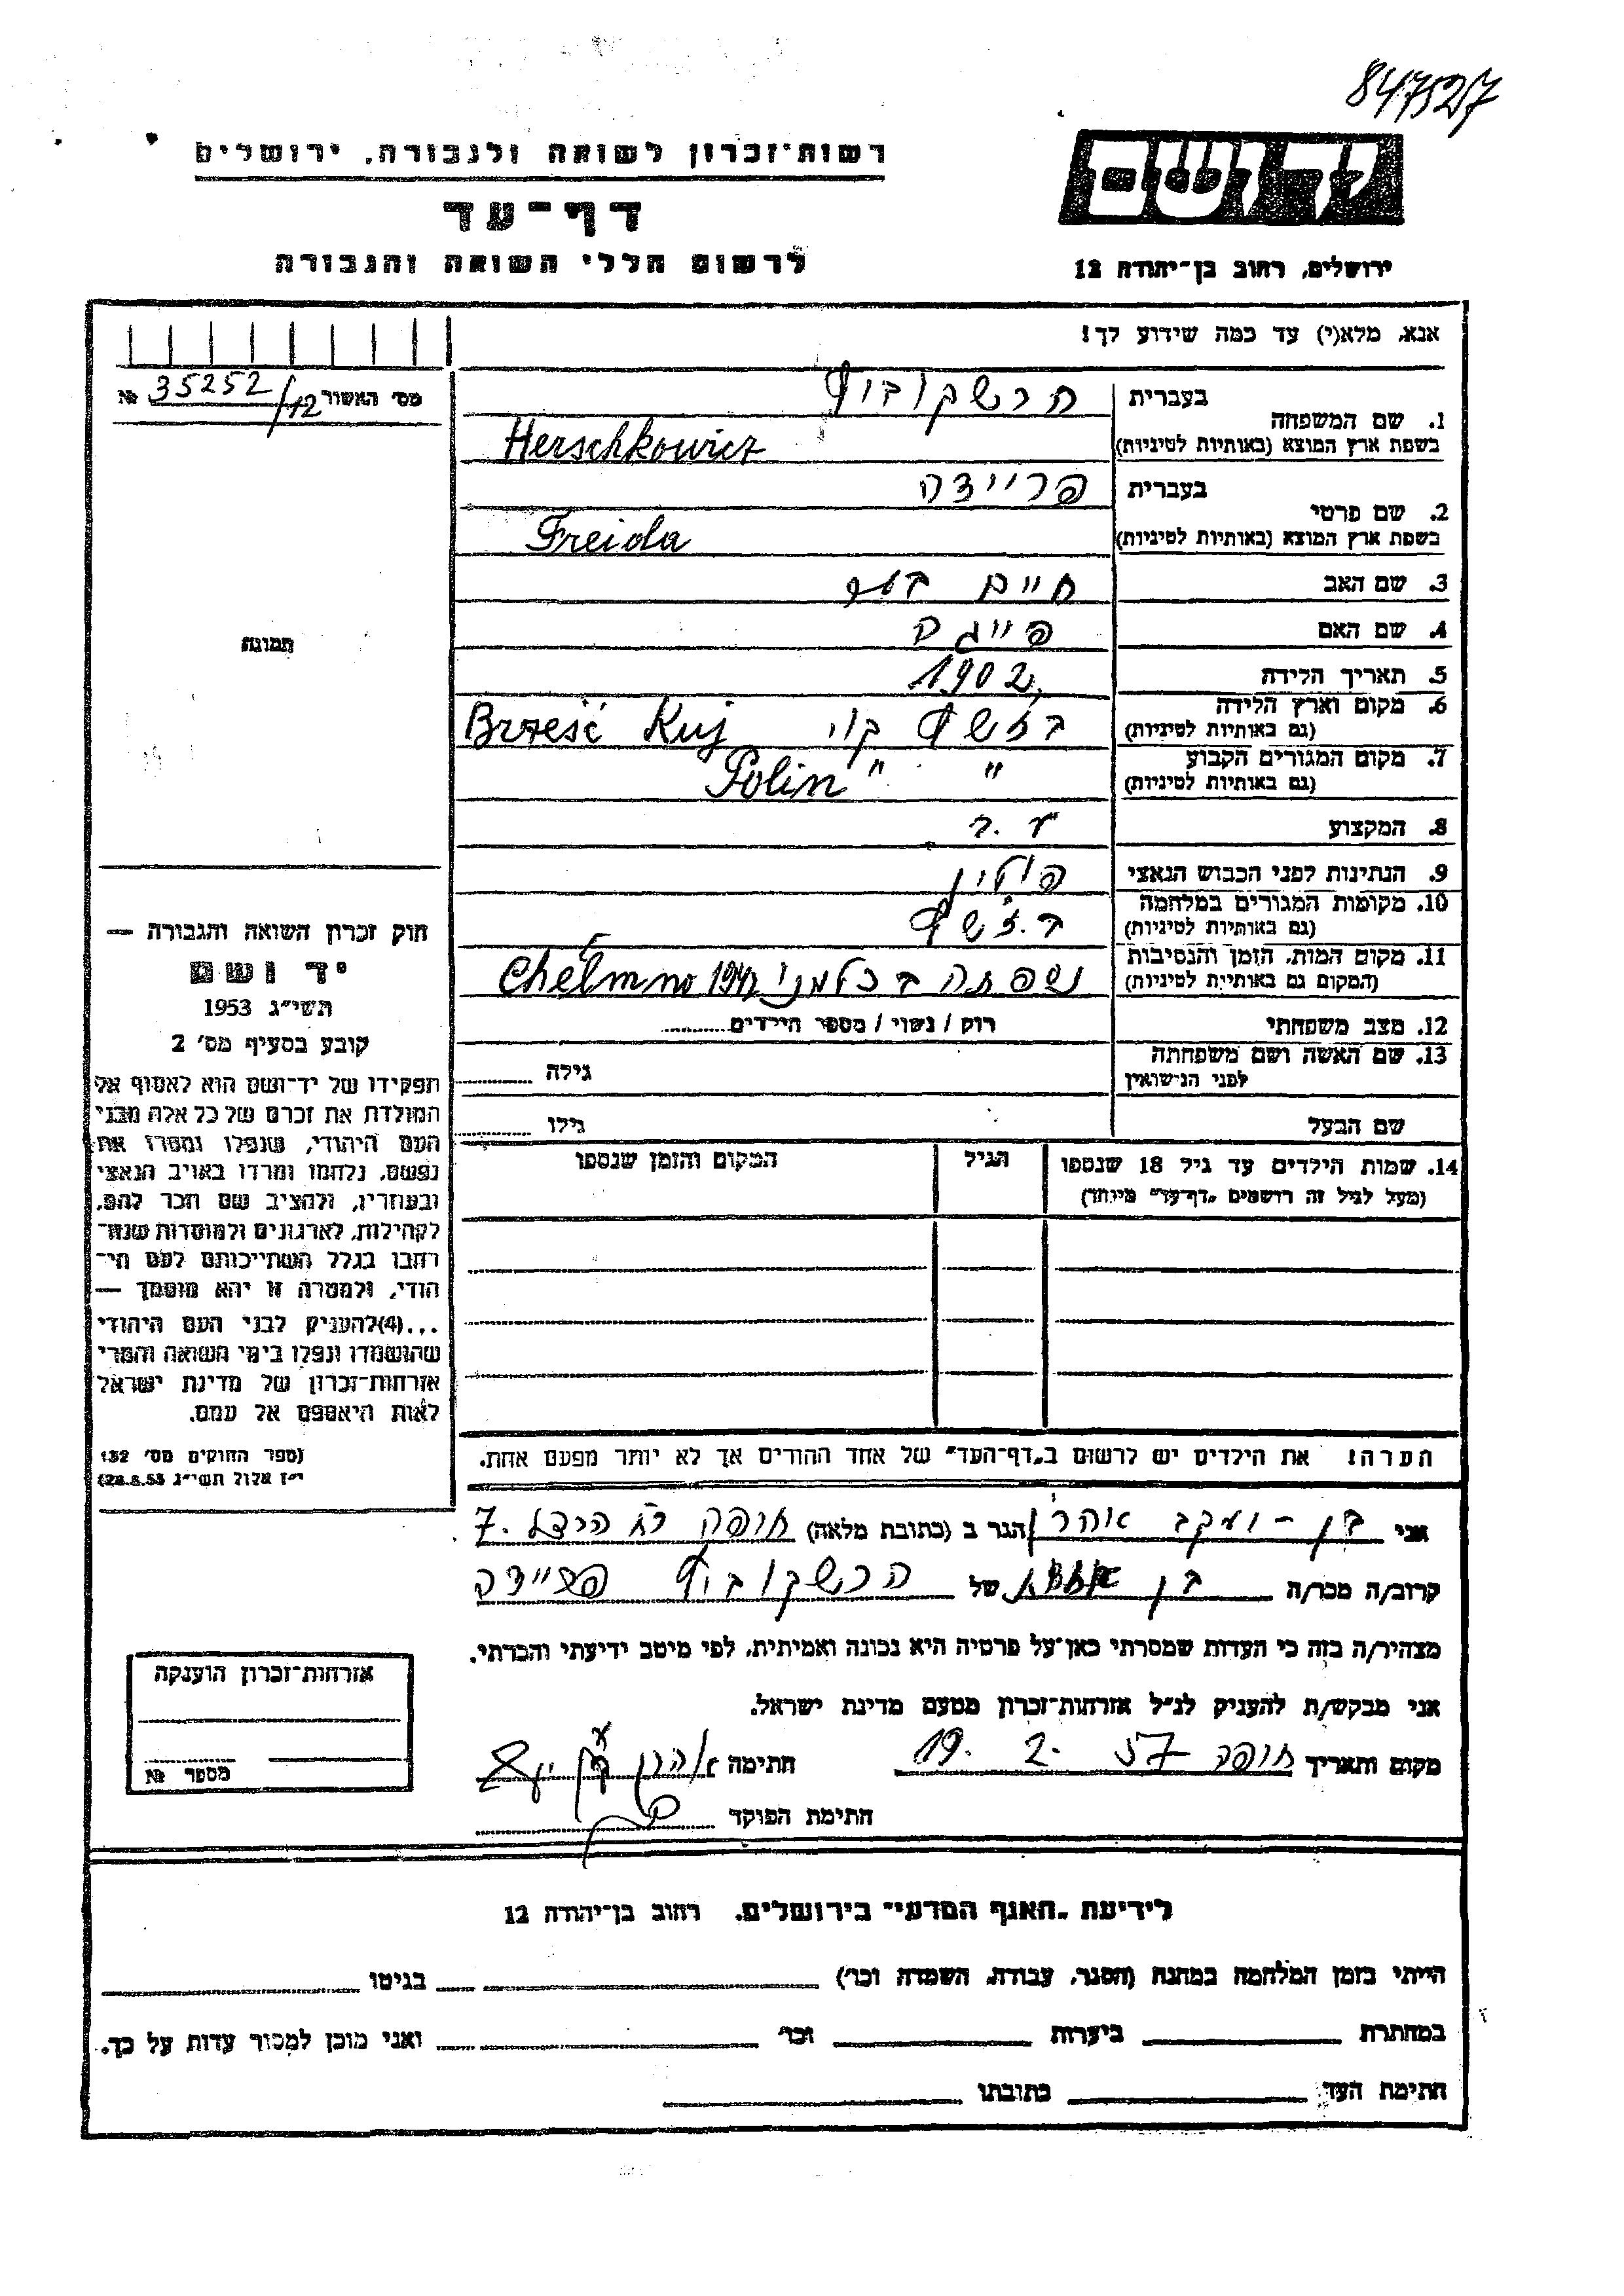 847527
יד ושם
רשות־זכרון לשואה ולגבורה, ירושלים
דף־עד
לרשום חללי השואה והגבורה
ירושלים, רחוב בן־יהודה 12
אנא, מלא(י) עד כמה שידוע לך!
מס׳ האשור № 35252/12
תמונה
1. שם המשפחה
בעברית הרשקוביץ
בשפת ארץ המוצא (באותיות לטיניות) Herschkowicz
2. שם פרטי
בעברית פריידה
בשפת ארץ המוצא (באותיות לטיניות) Freida
3. שם האב חיים
4. שם האם
5. תאריך הלידה 1902
6. מקום וארץ הלידה
(גם באותיות לטיניות) Brześć Kuj
7. מקום המגורים הקבוע " "
(גם באותיות לטיניות) Polin
8. המקצוע
9. הנתינות לפני הכבוש הנאצי פולין
10. מקומות המגורים במלחמה
(גם באותיות לטיניות)
11. מקום המות, הזמן והנסיבות נספתה בכלמנו
(המקום גם באותיות לטיניות) Chełmno
12. מצב משפחתי רוק / נשוי / מספר הילדים
13. שם האשה ושם משפחתה
לפני הנישואין גילה
שם הבעל גילו
14. שמות הילדים עד גיל 18 שנספו הגיל המקום והזמן שנספו
(מעל לגיל זה רושמים „דף־עד" מיוחד)
הערה! את הילדים יש לרשום ב„דף־העד" של אחד ההורים אך לא יותר מפעם אחת.
חוק זכרון השואה והגבורה —
יד ושם
תשי״ג 1953
קובע בסעיף מס׳ 2
תפקידו של יד־ושם הוא לאסוף אל
המולדת את זכרם של כל אלה מבני
העם היהודי, שנפלו ומסרו את
נפשם, נלחמו ומרדו באויב הנאצי
ובעוזריו, ולהציב שם וזכר להם,
לקהילות, לארגונים ולמוסדות שנח־
רבו בגלל השתייכותם לעם הי־
הודי, ולמטרה זו יהא מוסמך —
...(4)להעניק לבני העם היהודי
שהושמדו ונפלו בימי השואה והמרי
אזרחות־זכרון של מדינת ישראל
לאות היאספם אל עמם.
(ספר החוקים מס׳ 132
י״ז אלול תשי״ג 28.8.53)
אני בן-יעקב אהרן הגר ב (כתובת מלאה) חיפה רח 7.
קרוב/ה מכר/ה בן של הרשקוביץ פריידה
מצהיר/ה בזה כי העדות שמסרתי כאן על פרטיה היא נכונה ואמיתית, לפי מיטב ידיעתי והכרתי.
אני מבקש/ת להעניק לנ״ל אזרחות־זכרון מטעם מדינת ישראל.
מקום ותאריך חיפה 19. 2. 57 חתימה אהרן בן יעקב
חתימת הפוקד
אזרחות־זכרון הוענקה
מספר №
לידיעת „האגף המדעי" בירושלים, רחוב בן־יהודה 12
הייתי בזמן המלחמה במחנה (הסגר, עבודה, השמדה וכו׳) בגיטו
במחתרת ביערות וכו׳ ואני מוכן למסור עדות על כך.
חתימת העד כתובתו